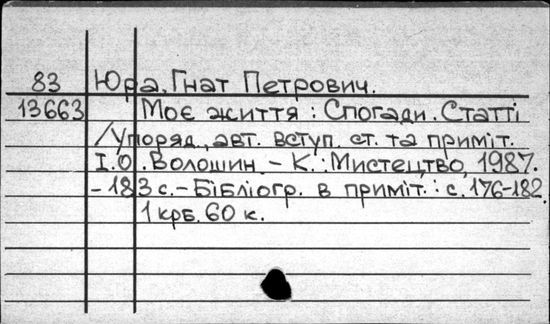 83 Юра, Гнат Петрович.
13663 Моє життя : Спогади. Статті
/Упоряд., авт. вступ. ст. та приміт.
І.О. Волошин. - К. : Мистецтво, 1987.
- 183 с. - Бібліогр. в приміт. : с. 176-182.
1 крб. 60 к.